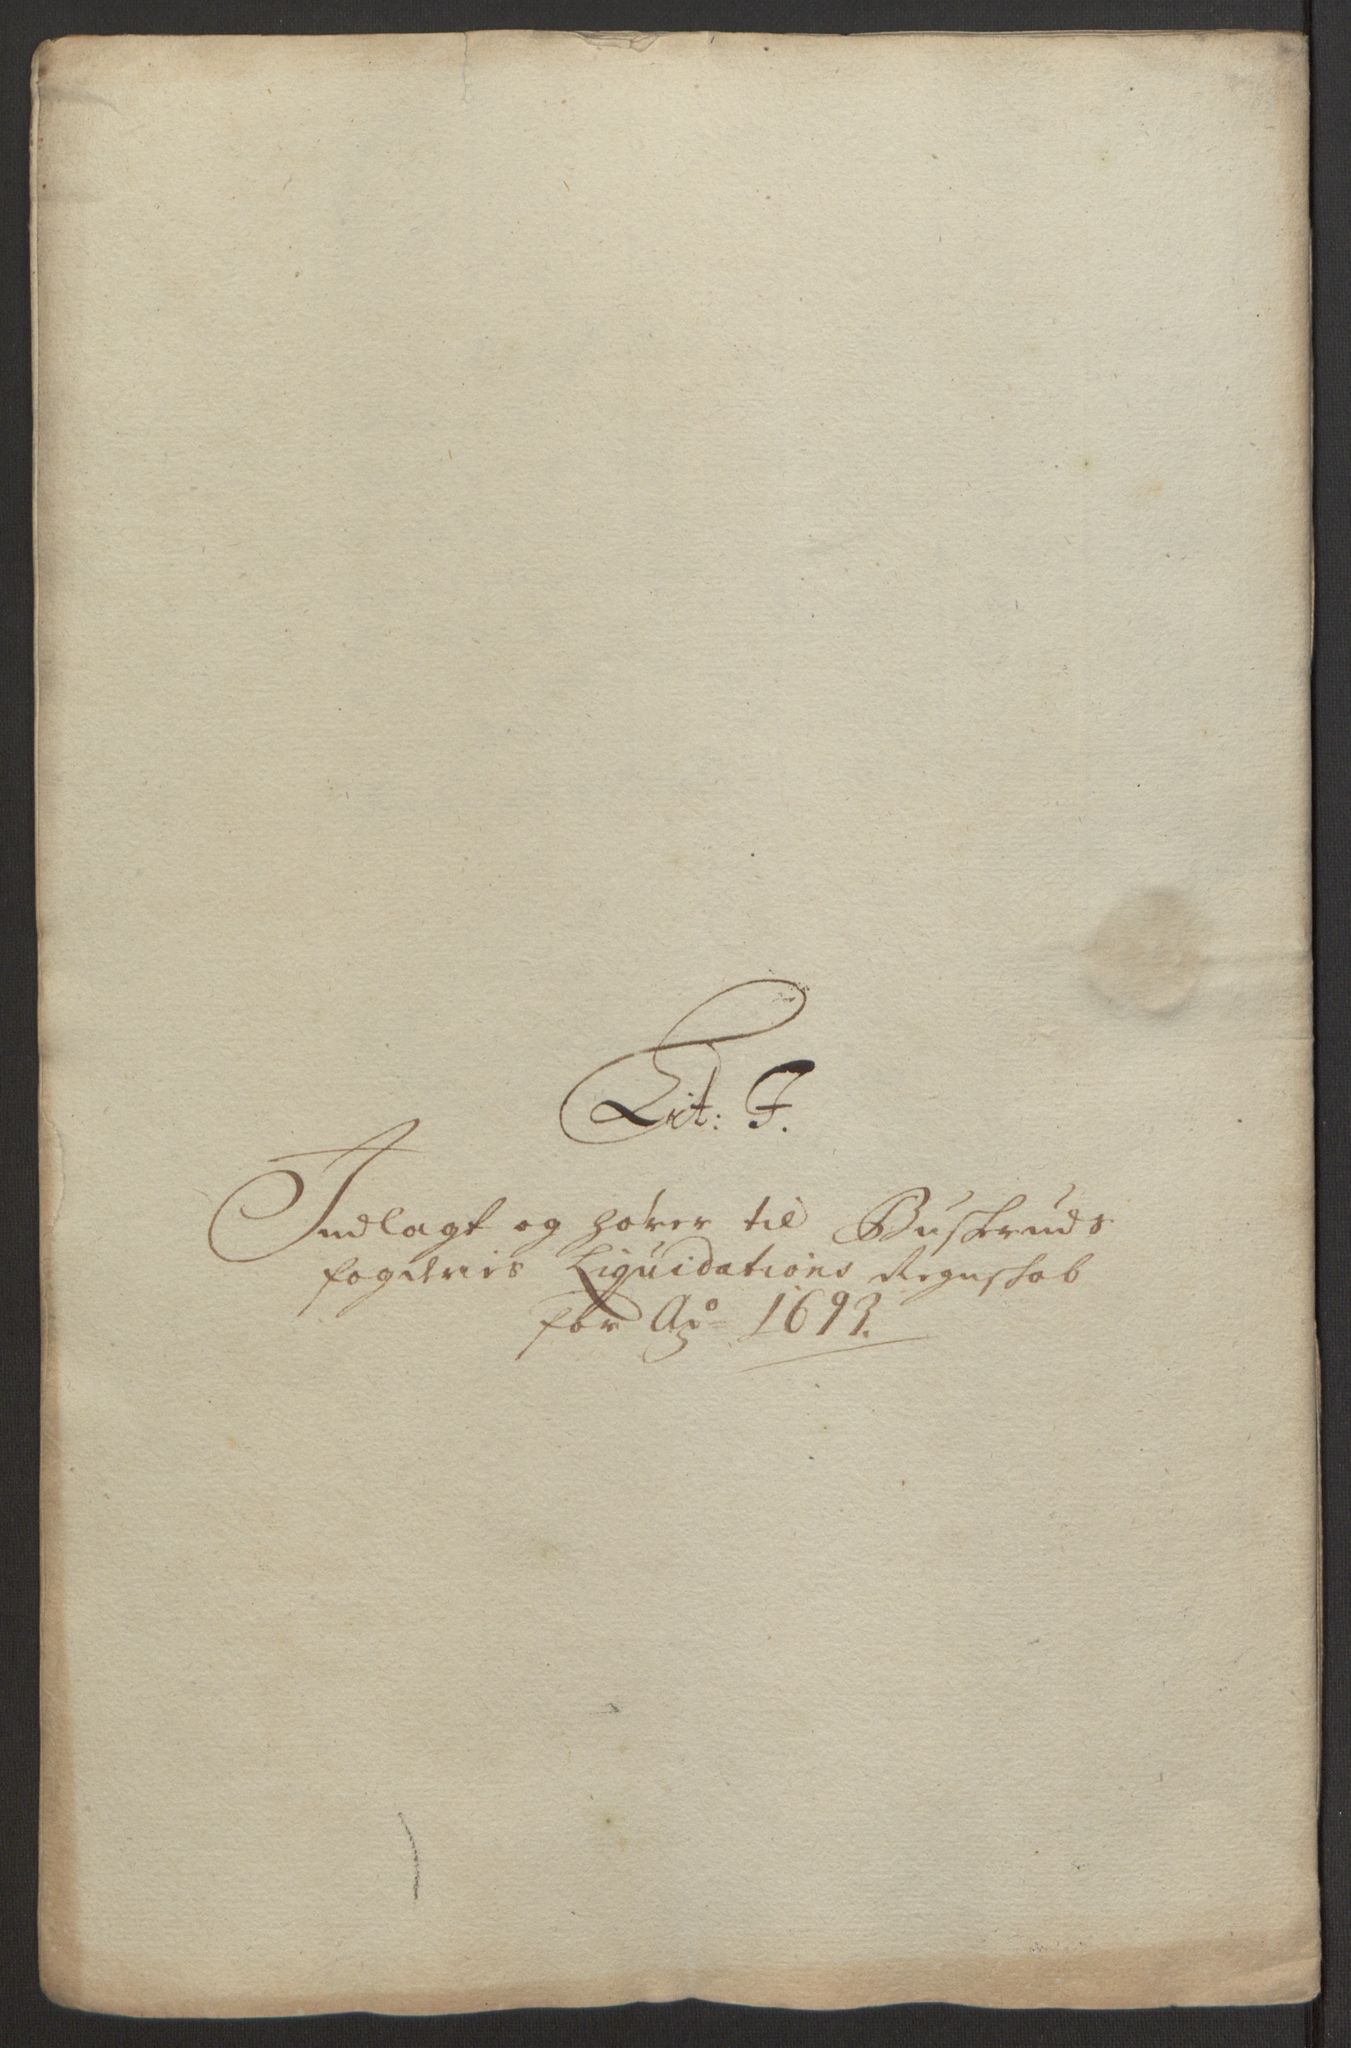 Lit: F.
Indlagt og hører til Buskeruds
fogderies Liquidations Regnskab
for Ao 1693.